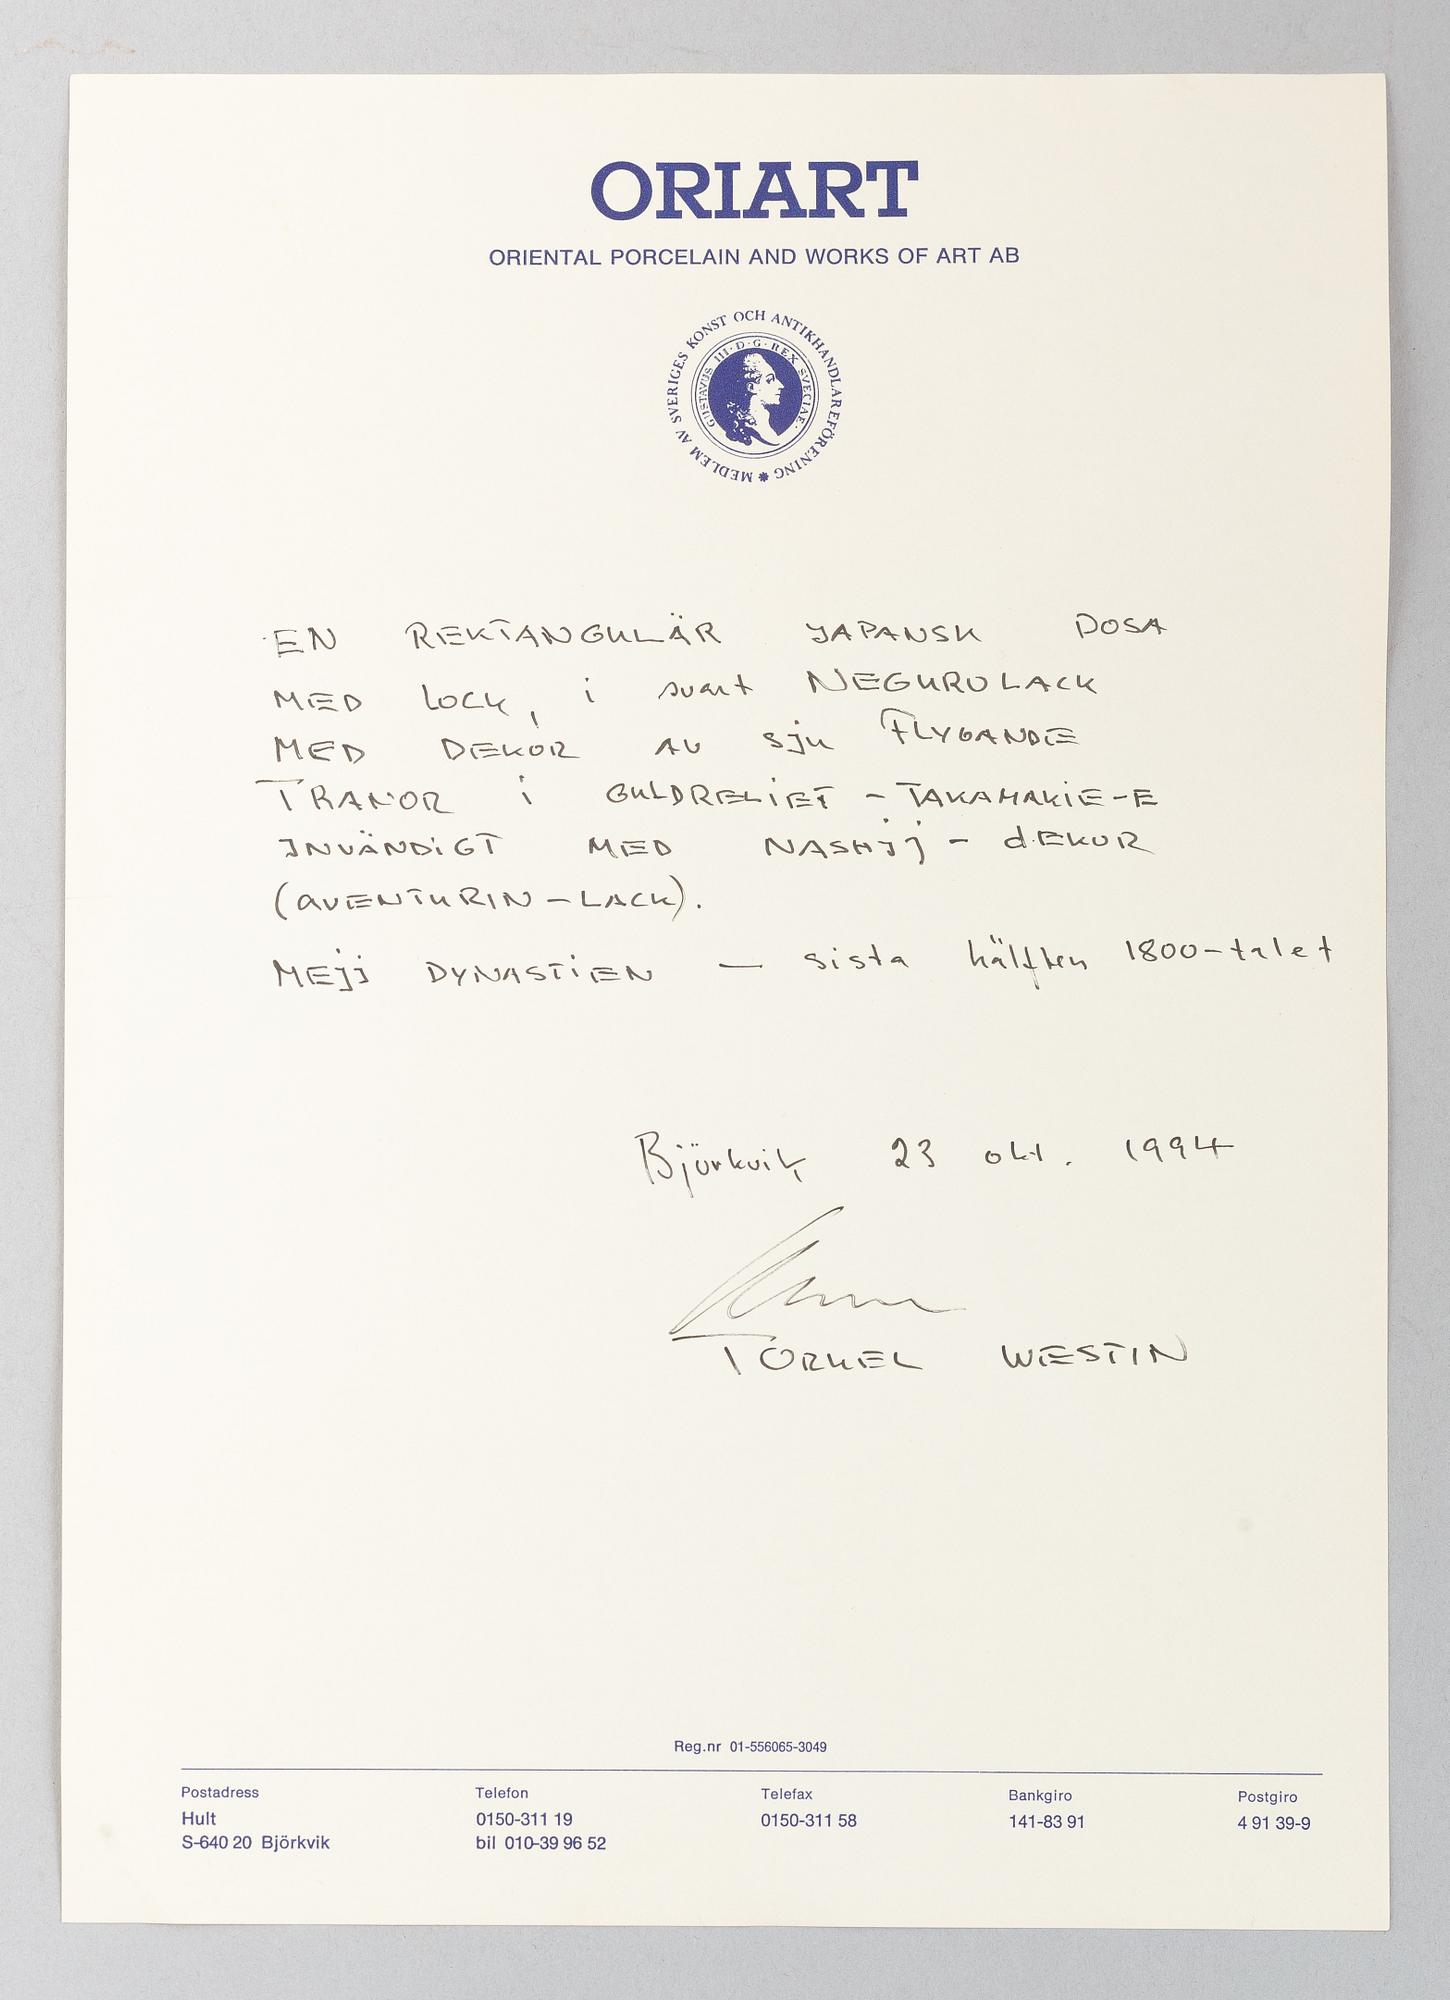 ORIART
ORIENTAL PORCELAIN AND WORKS OF ART AB
MEDLEM AV SVERIGES KONST OCH ANTIKHANDLAREFÖRENING
GUSTAVUS III·D·G·REX SVECIAE·
EN REKTANGULÄR JAPANSK DOSA
MED LOCK, i svart NEGUROLACK
MED DEKOR AV sju FLYGANDE
TRANOR i GULDRELIEF - TAKAMAKIE-E
INVÄNDiGT MED NASHijj - dEKOR
(aVENTURIN - LACK).
MEjji DYNASTiEN - sista hälften 1800-talet
Björkvik 23 okt. 1994
TORKEL WESTIN
Reg.nr 01-556065-3049
Postadress Telefon Telefax Bankgiro Postgiro
Hult 0150-311 19 0150-311 58 141-83 91 4 91 39-9
S-640 20 Björkvik bil 010-39 96 52